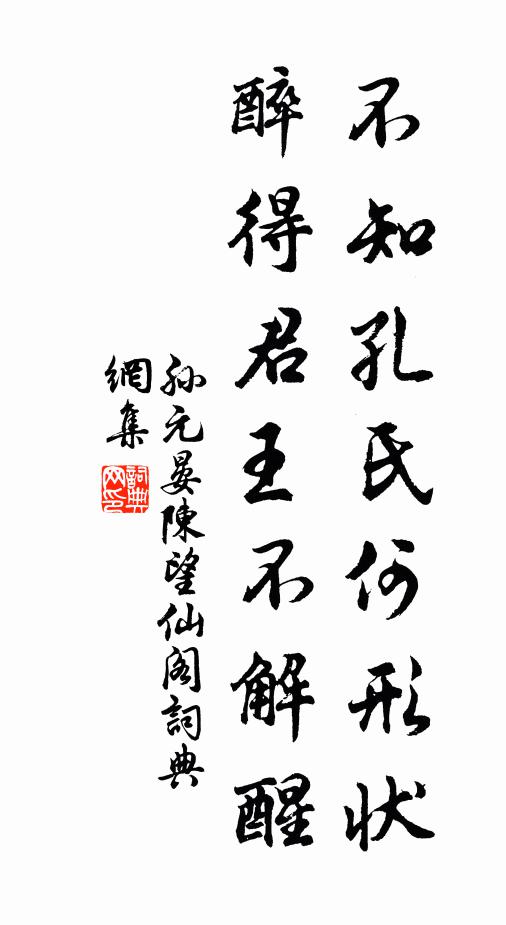 不知孔氏何形状
醉得君王不解醒
孙元晏陳望仙阁詞典
網集
詞典
网印